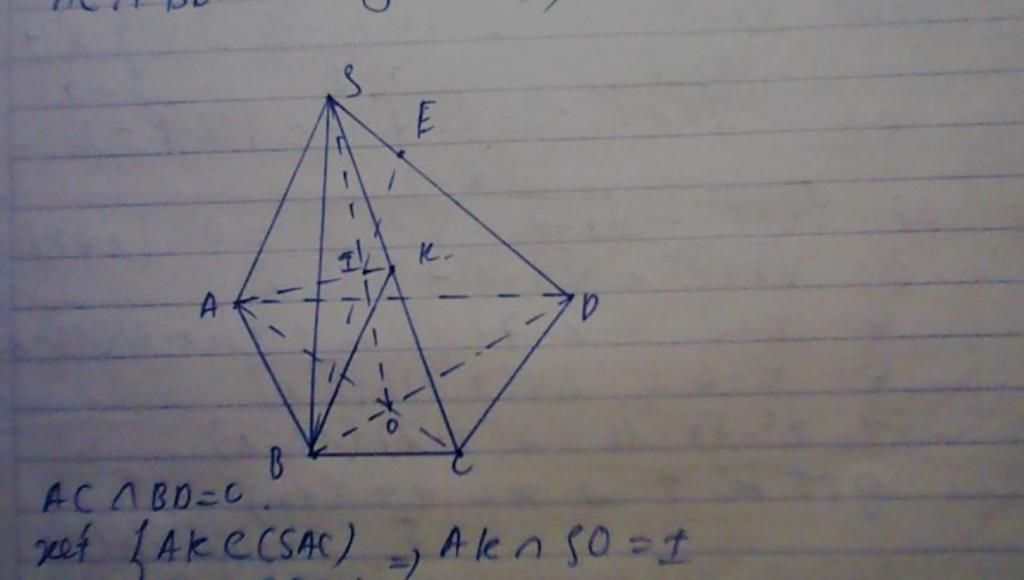 AC ∩ BD
S
E
I K.
A D
O
B C
AC ∩ BD = O.
xét { AK ⊂ (SAC) => AK ∩ SO = I